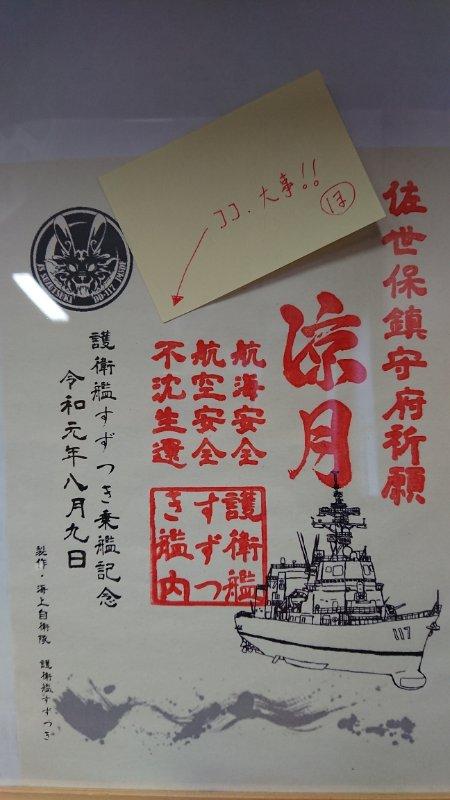 佐世保鎮守府祈願
涼月
航海安全
航空安全
不沈生還
護衛艦
すずつ
き艦内
護衛艦すずつき乗艦記念
令和元年八月九日
製作・海上自衛隊 護衛艦すずつき
117
ココ、大事!!
ほ
JS SUZUTSUKI
DD-117